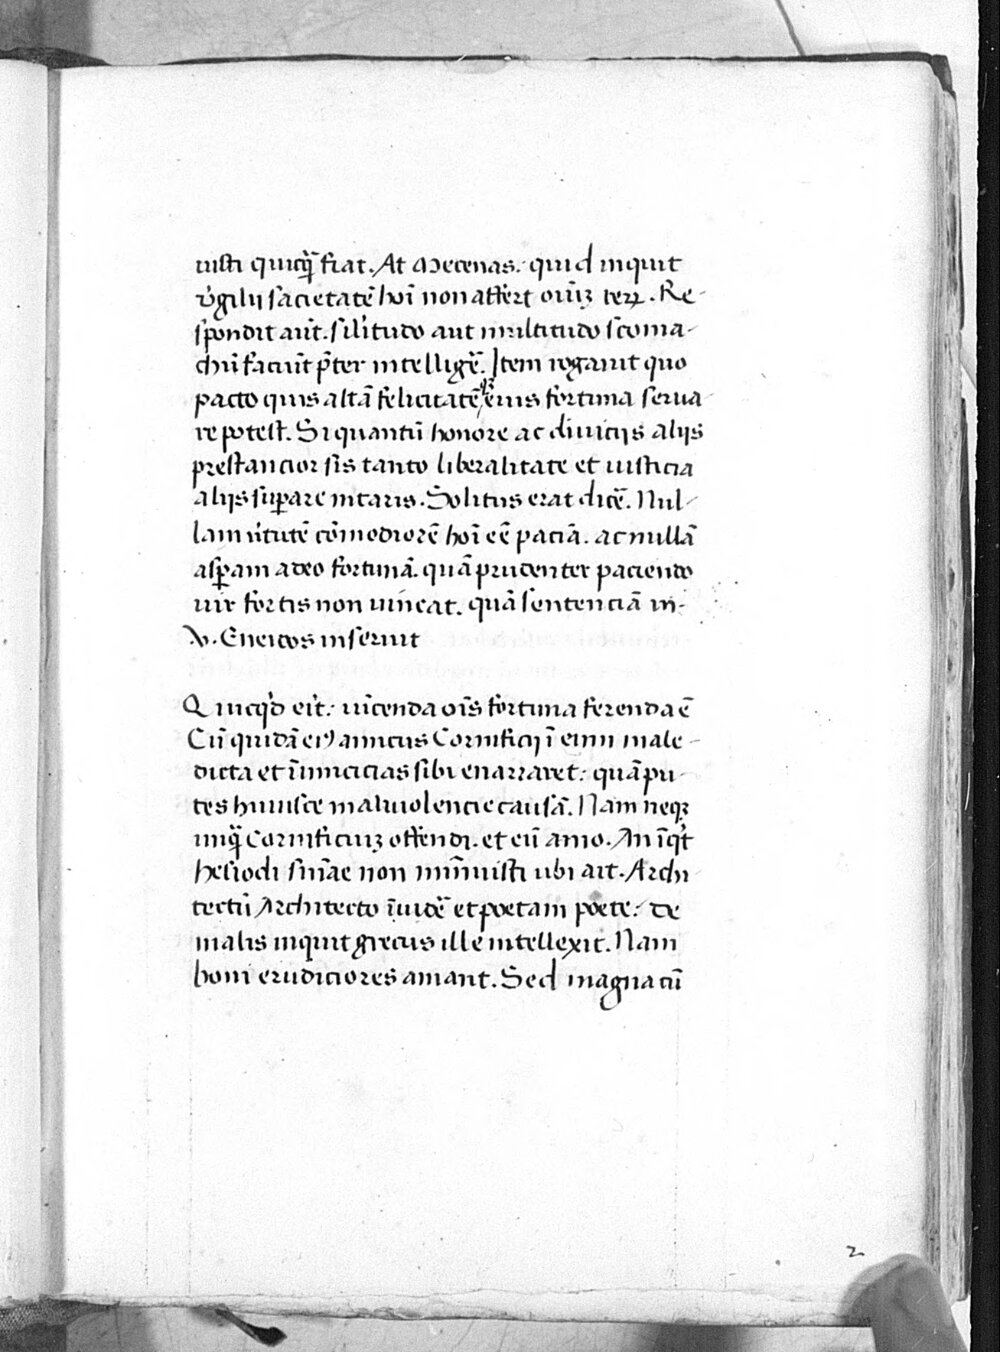 iusti quicq̃ fiat. At Mecenas. quid inquit
v̓gilii sacietatē hoī non affert oīuꝫ reꝝ. Re-
spondit aūt. sil̓itudo aut multitudo stoma-
chū faciūt p̄ter intelligē. Item rogauit quo
pacto quis altā felicitatē eius fortuna serua-
re potest. Si quantū honore ac diuiciis aliis
prestancior sis tanto liberalitate et iusticia
aliis suꝑare nitaris. Solitus erat dicē. Nul-
lam v̓tutē cōmodiorē hoī eē paciā. ac nullā
asꝑam adeo fortunā. quā prudenter paciendo
uir fortis non uincat. quā sentenciā in-
.v. Eneidos inseruit
Quicq̓d eit̓: uīcenda oīs fortuna ferenda ē
Cū quidā eiꝰ amicus Cornificii ī eum male-
dicta et īimicicias sibi enarraret: quā pu-
tes huiusce maliuolencie causā. Nam neqꝫ
unq̃ Cornificiuꝫ offendi. et eū amo. An īq̓t
hesiodi sn̄iae non mīnisti ubi ait. Archi-
tectū Architecto īuidē et poetam poete. de
malis inquit grecus ille intellexit. Nam
boni erudiciores amant. Sed magna cū
2